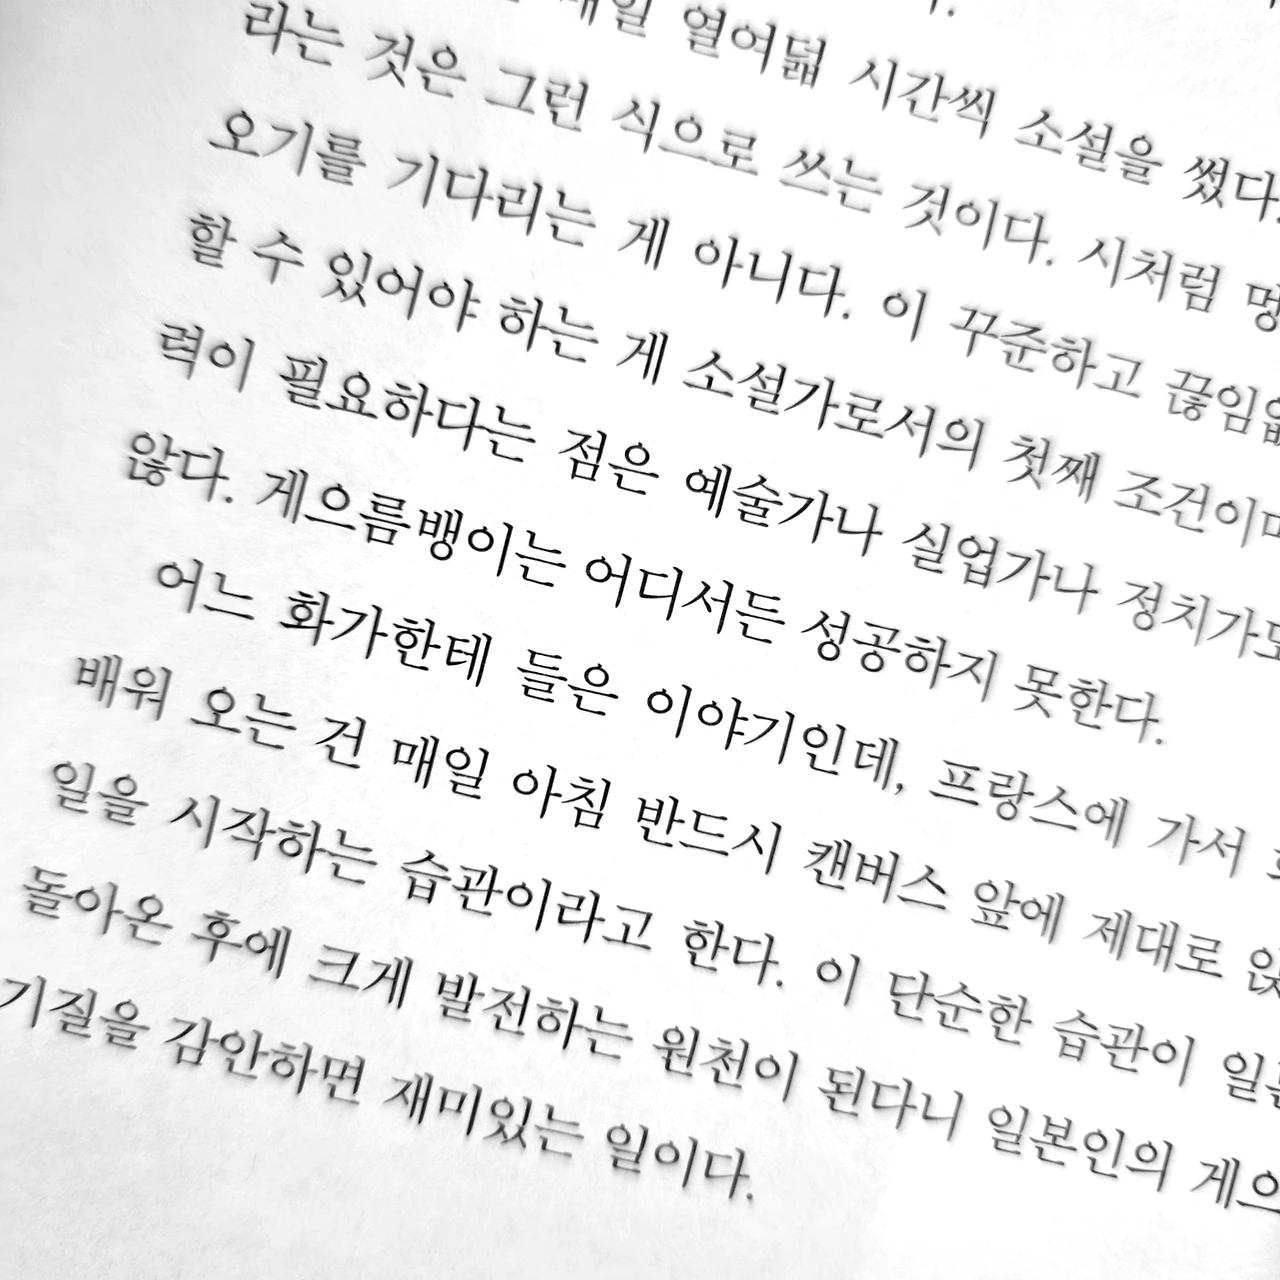 매일 열여덟 시간씩 소설을 썼다.
라는 것은 그런 식으로 쓰는 것이다. 시처럼
오기를 기다리는 게 아니다. 이 꾸준하고
할 수 있어야 하는 게 소설가로서의 첫째
력이 필요하다는 점은 예술가나 실업가나
않다. 게으름뱅이는 어디서든 성공하지 못한다.
어느 화가한테 들은 이야기인데, 프랑스에 가서
배워 오는 건 매일 아침 반드시 캔버스 앞에 제대로
일을 시작하는 습관이라고 한다. 이 단순한 습관이
돌아온 후에 크게 발전하는 원천이 된다니 일본인의
기질을 감안하면 재미있는 일이다.